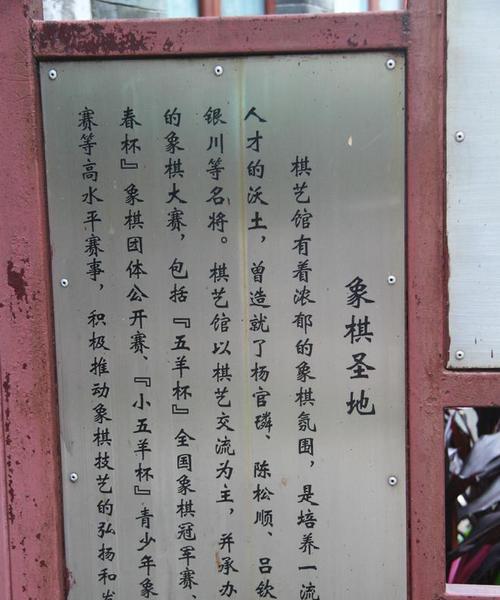 象棋圣地
棋艺馆有着浓郁的象棋氛围，是培养一流
人才的沃土，曾造就了杨官璘、陈松顺、吕钦
银川等名将。棋艺馆以棋艺交流为主，并承办
的象棋大赛，包括『五羊杯』全国象棋冠军赛、
春杯』象棋团体公开赛、『小五羊杯』青少年象
赛等高水平赛事，积极推动象棋技艺的弘扬和